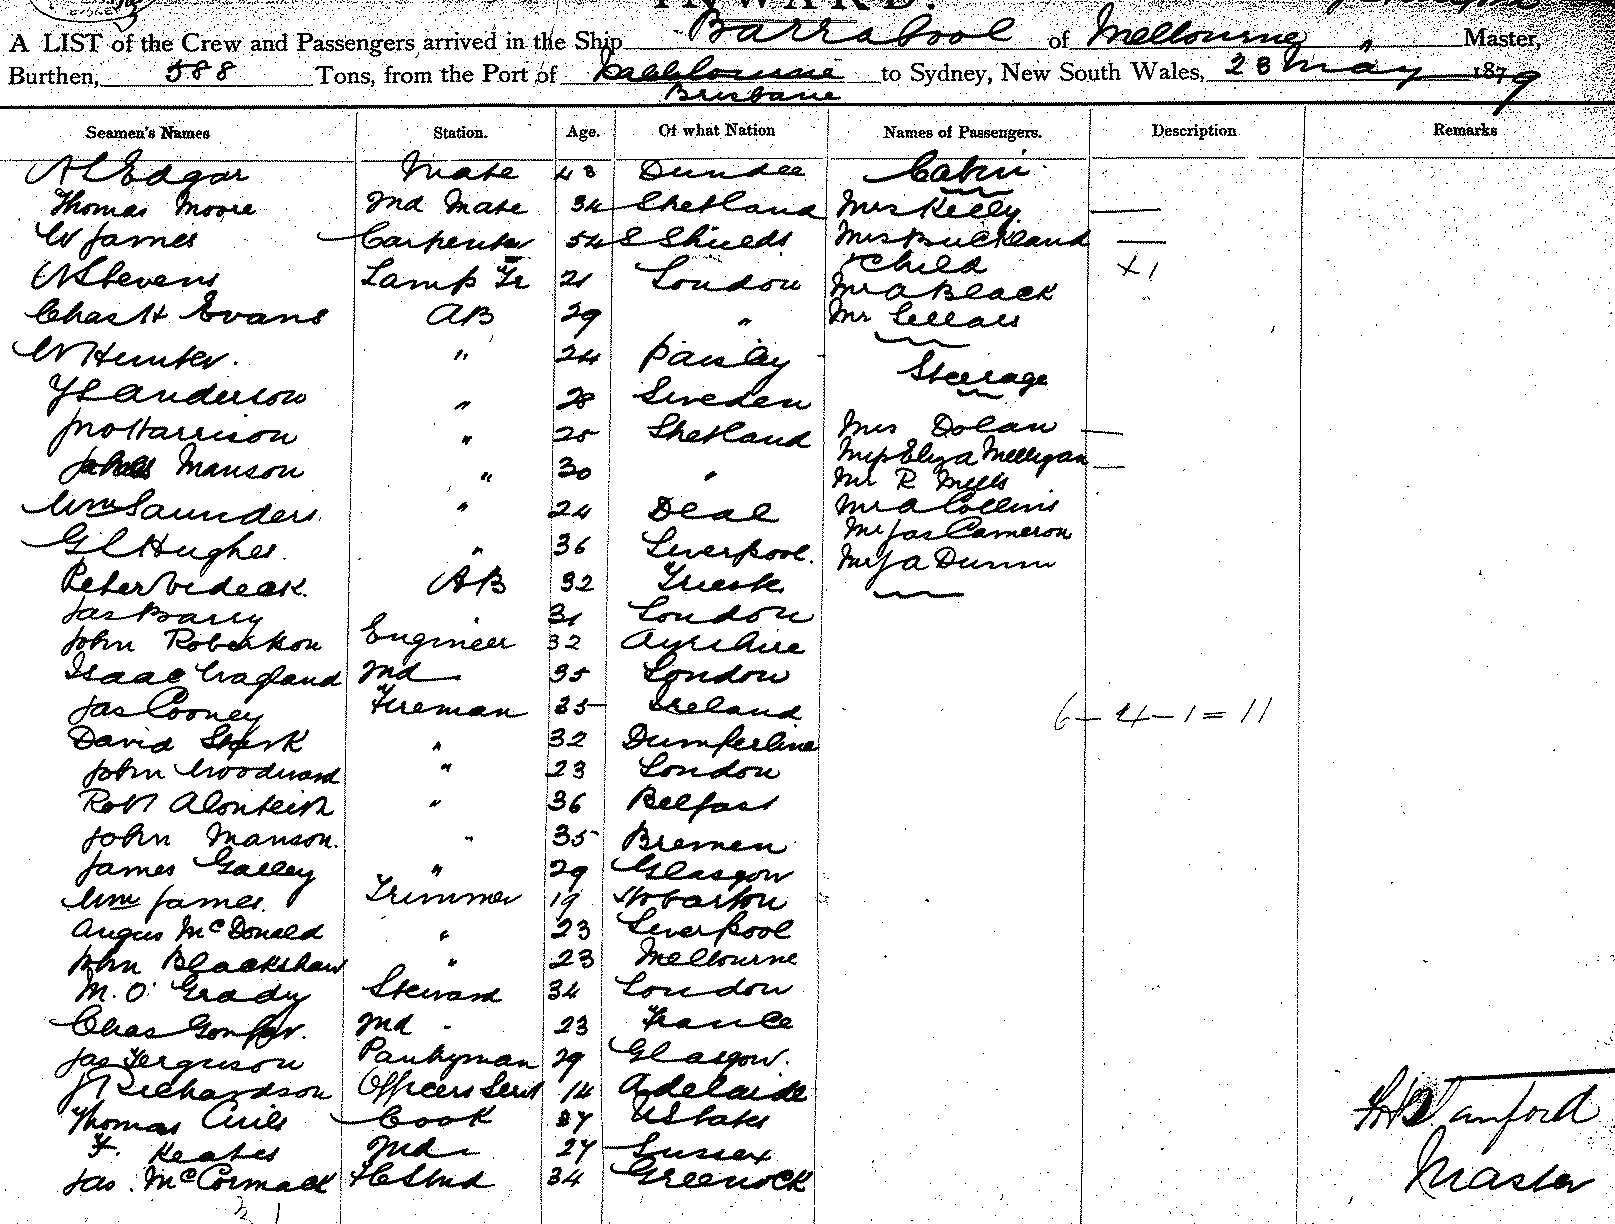 INWARD.
A LIST of the Crew and Passengers arrived in the Ship Barrabool of Melbourne " Master,
Burthen, 588 Tons, from the Port of Melbourne to Sydney, New South Wales, 23 May 1879
Brisbane
Seamen's Names Station. Age. Of what Nation Names of Passengers. Description Remarks
A C Edgar Mate 43 Dundee Cabin
Thomas Moore 2nd Mate 34 Shetland Mrs Kelly —
W James Carpenter 54 S Shields Mrs Buckland —
& Child x1
W Stevens Lamp Tr 21 London Mr A Black
Chas H Evans AB 29 " Mr Cellars
W Hunter. " 24 Paisley
Steerage
Anderson " 28 Sweden
Jno Harrison " 25 Shetland Mrs Dolan —
Manson " 30 " Miss Eliza Milligan —
Mr R Mills
Wm Saunders " 24 Deal Mr A Collins
Mr Jas Cameron
G C Hughes. " 36 Liverpool. Mr J A Dunn
Peter AB 32
Jas Barry 31 London
John Robertson Engineer 32 Ayrshire
Isaac 2nd 35 London
Jas Cooney Fireman 35 Ireland 6-4-1=11
David " 32 Dumferline
John Woodward " 23 London
Robt " 36 Belfast
John Manson. " 35 Bremen
James Galley " 29 Glasgow
Wm James. Trimmer 19 Hobarton
Angus McDonald " 23 Liverpool
John Blackshaw " 23 Melbourne
M. O'Grady Steward 34 London
Chas 2nd - 23 France
Jas Ferguson Pantryman 29 Glasgow.
J Richardson Officers Servt 14 Adelaide
Thomas Cook 37 U States
F. Keates 2nd 27 Sussex
Jas. McCormack 34 Greenock
Master